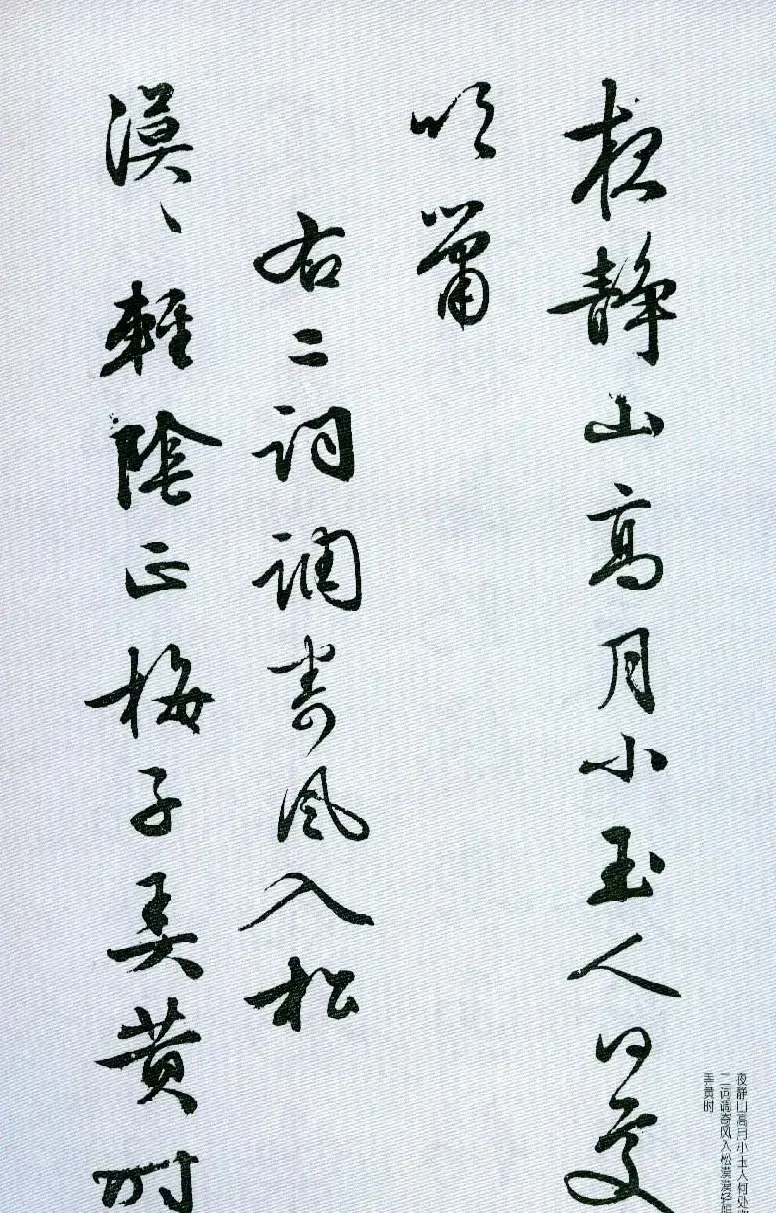 夜静山高月小玉人何处
吹箫
右二词调寄风入松
漠漠輕陰正梅子弄黄时
夜静山高月小玉人何处
二词调寄风入松漠漠轻阴
弄黄时